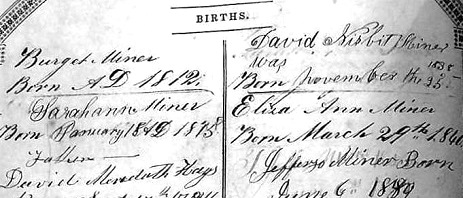 BIRTHS.
Burget Miner
Born AD 1812
Sarahann Miner
Born January 18 AD 1875
David Meredith Hays
David Nisbit Miner
was
Born november the 25
Eliza Ann Miner
Born March 29th 1840
Jefferso Miner Born
June 6